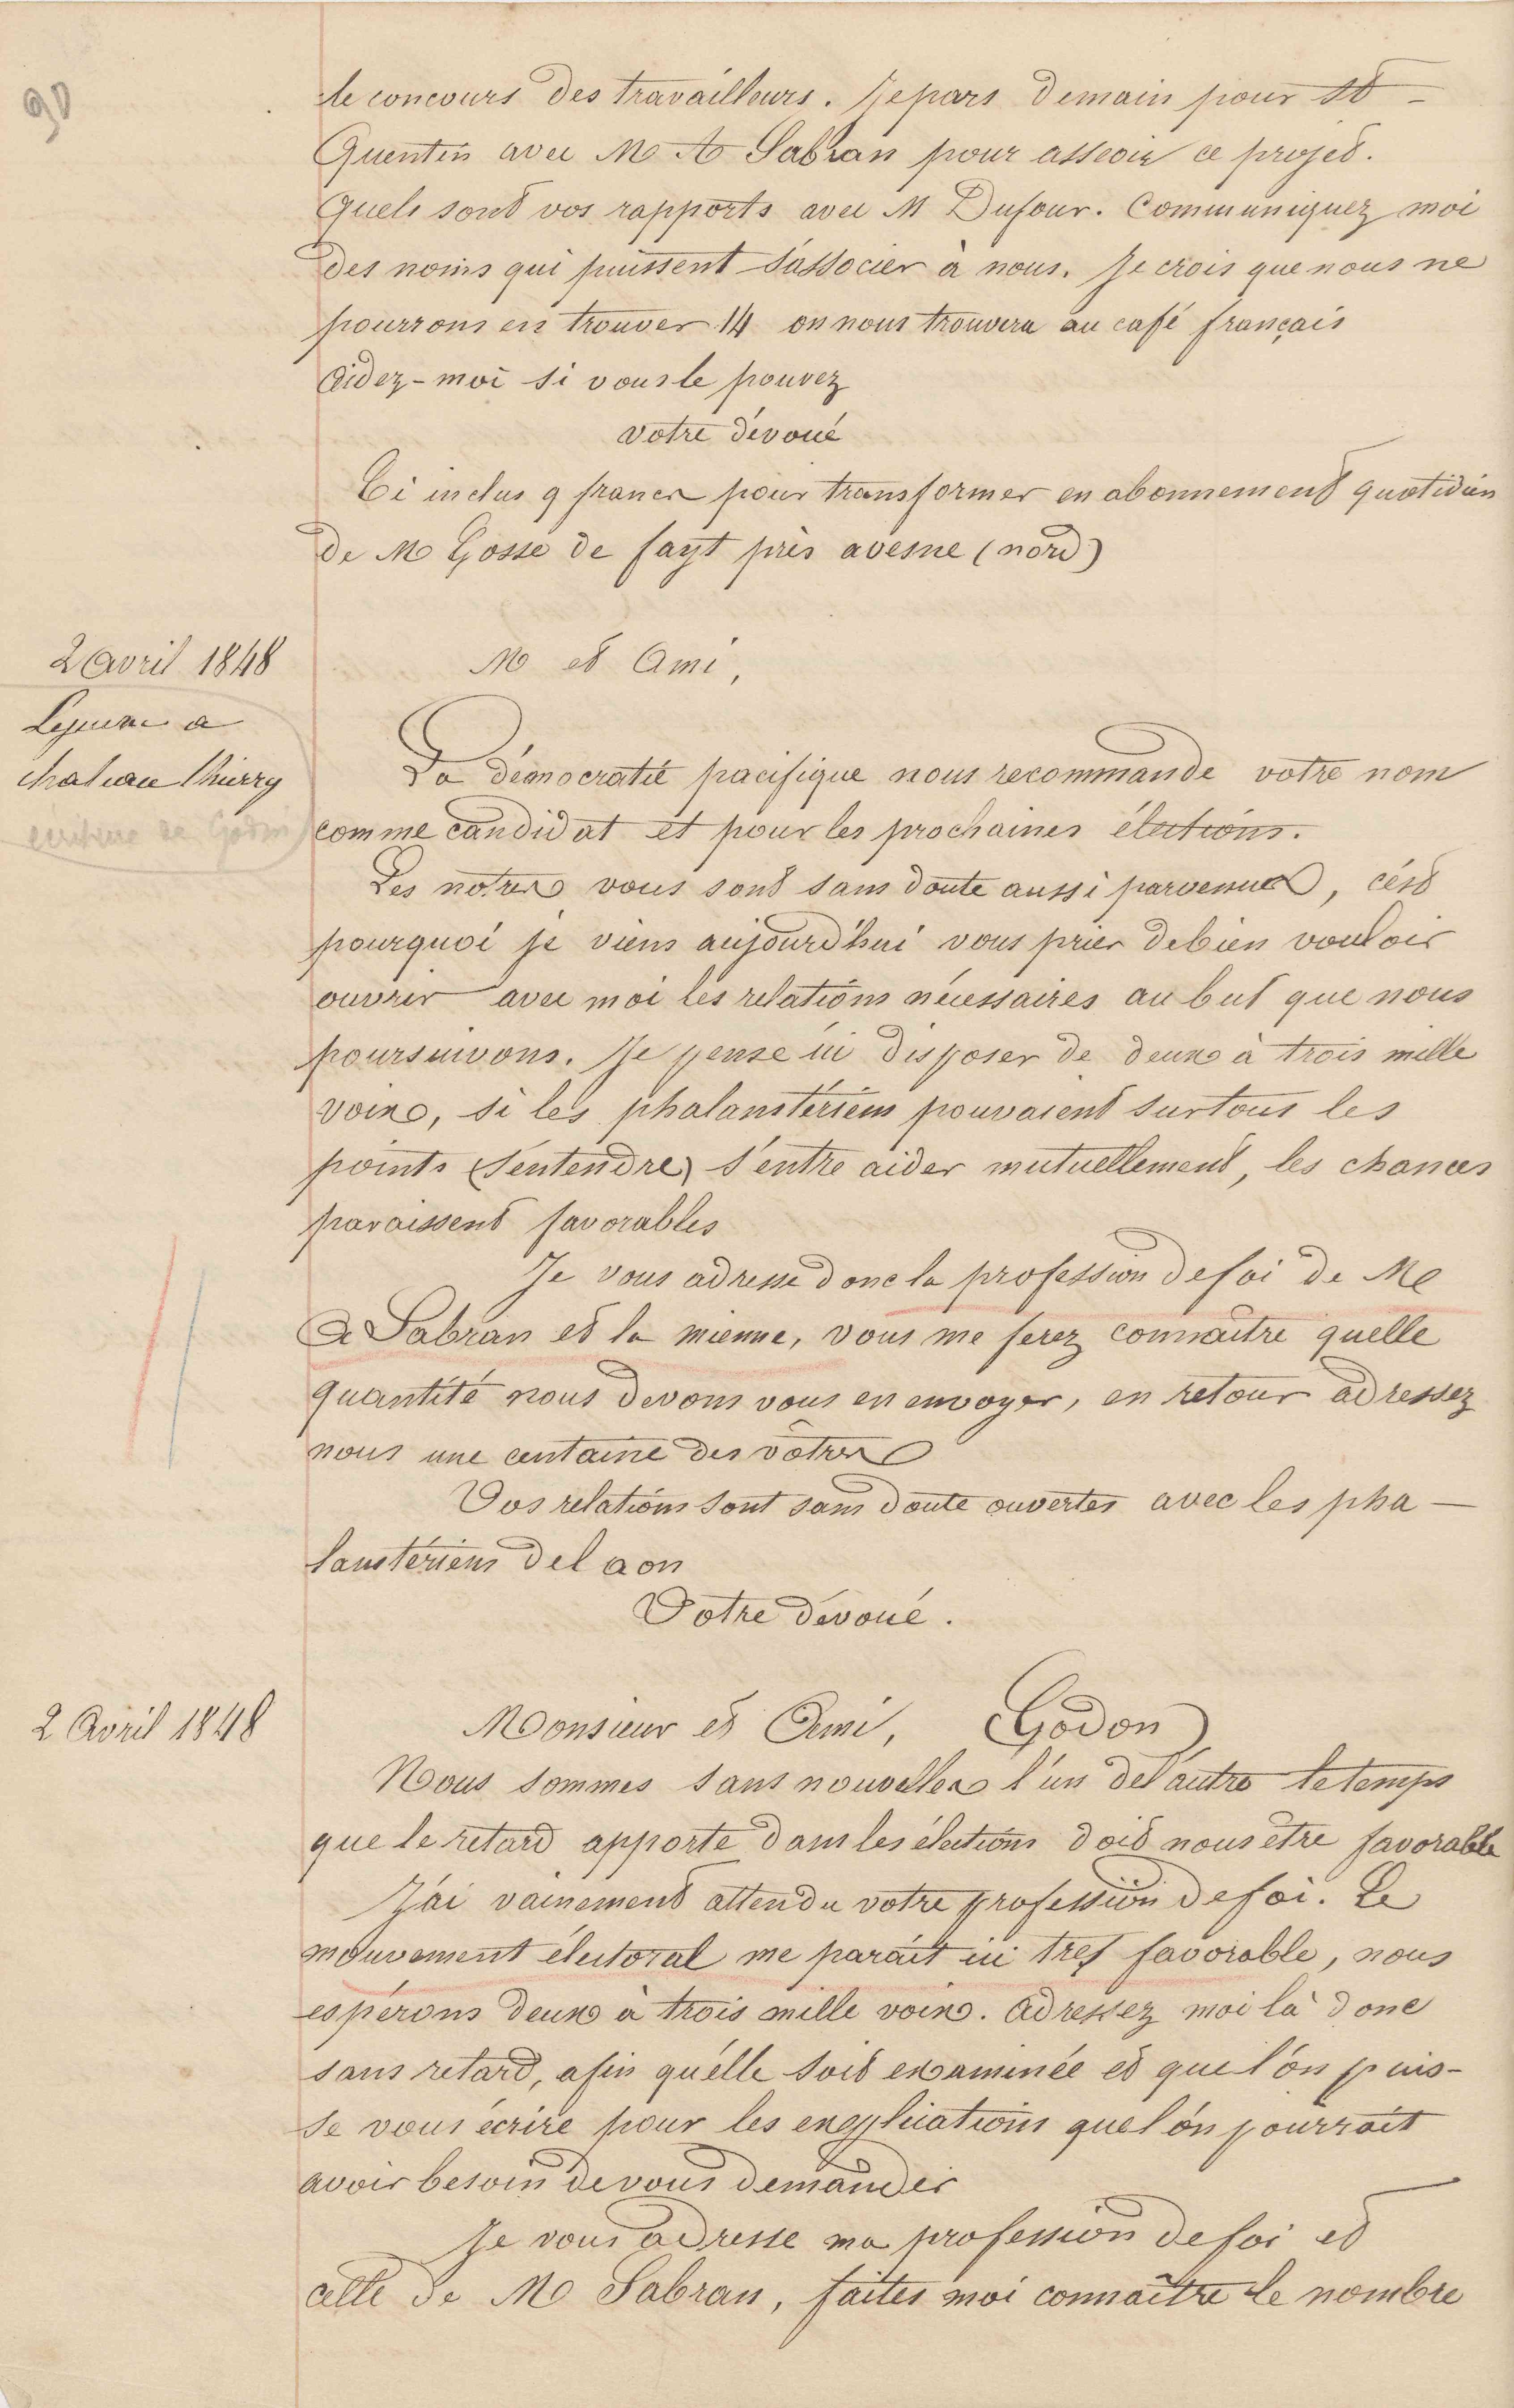 90
le concours des travailleurs. Je pars demain pour St-
Quentin avec M A Sabran pour asseoir ce projet.
Quels sont vos rapports avec M Dufour. Communiquez moi
des noms qui puissent s'associer à nous. Je crois que nous ne
pourrons en trouver 14 on nous trouvera au café français
aidez-moi si vous le pouvez
votre dévoué
Ci inclus 9 francs pour transformer en abonnement quotidien
de M Gosse de fayt près avesne (nord)
2 avril 1848
Lejeune a
chateau thierry
écriture de Godin
M et Ami,
La démocratie pacifique nous recommande votre nom
comme candidat et pour les prochaines élections.
Les notres vous sont sans doute aussi parvenues, c'est
pourquoi je viens aujourd'hui vous prier de bien vouloir
ouvrir avec moi les relations nécessaires au but que nous
poursuivons. Je pense ici disposer de deux à trois mille
voix, si les phalanstériens pouvaient sur tous les
points (s'entendre) s'entre aider mutuellement, les chances
paraissent favorables
Je vous adresse donc la profession de foi de M
de Sabran et la mienne, vous me ferez connaître quelle
quantité nous devons vous en envoyer, en retour adressez
nous une centaine des vôtres
Vos relations sont sans doute ouvertes avec les pha-
lanstériens de laon
Votre dévoué.
2 Avril 1848
Monsieur et Ami, Godon
Nous sommes sans nouvelles l'un de l'autre le temps
que le retard apporte dans les élections doit nous être favorable
J'ai vainement attendu votre profession de foi. Le
mouvement électoral me parait ici très favorable, nous
espérons deux à trois mille voix. adressez moi là donc
sans retard, afin qu'elle soit examinée et que l'on puis-
se vous écrire pour les explications que l'on pourrait
avoir besoin de vous demander
Je vous adresse ma profession de foi et
celle de M Sabran, faites moi connaître le nombre